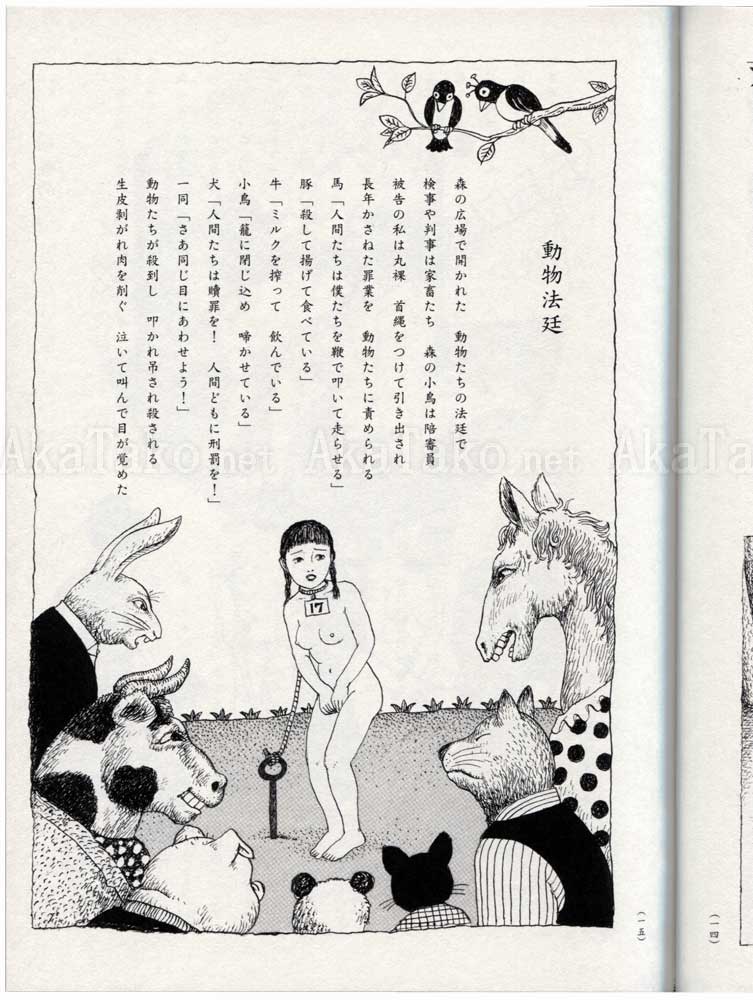 動物法廷
森の広場で開かれた　動物たちの法廷で
検事や判事は家畜たち　森の小鳥は陪審員
被告の私は丸裸　首縄をつけて引き出され
長年かさねた罪業を　動物たちに責められる
馬「人間たちは僕たちを鞭で叩いて走らせる」
豚「殺して揚げて食べている」
牛「ミルクを搾って　飲んでいる」
小鳥「籠に閉じ込め　啼かせている」
犬「人間たちは贖罪を！　人間どもに刑罰を！」
一同「さあ同じ目にあわせよう！」
動物たちが殺到し　叩かれ吊され殺される
生皮剝がれ肉を削ぐ　泣いて叫んで目が覚めた
17
（一五）
（一四）
AkaTako.net AkaTako.net AkaTa